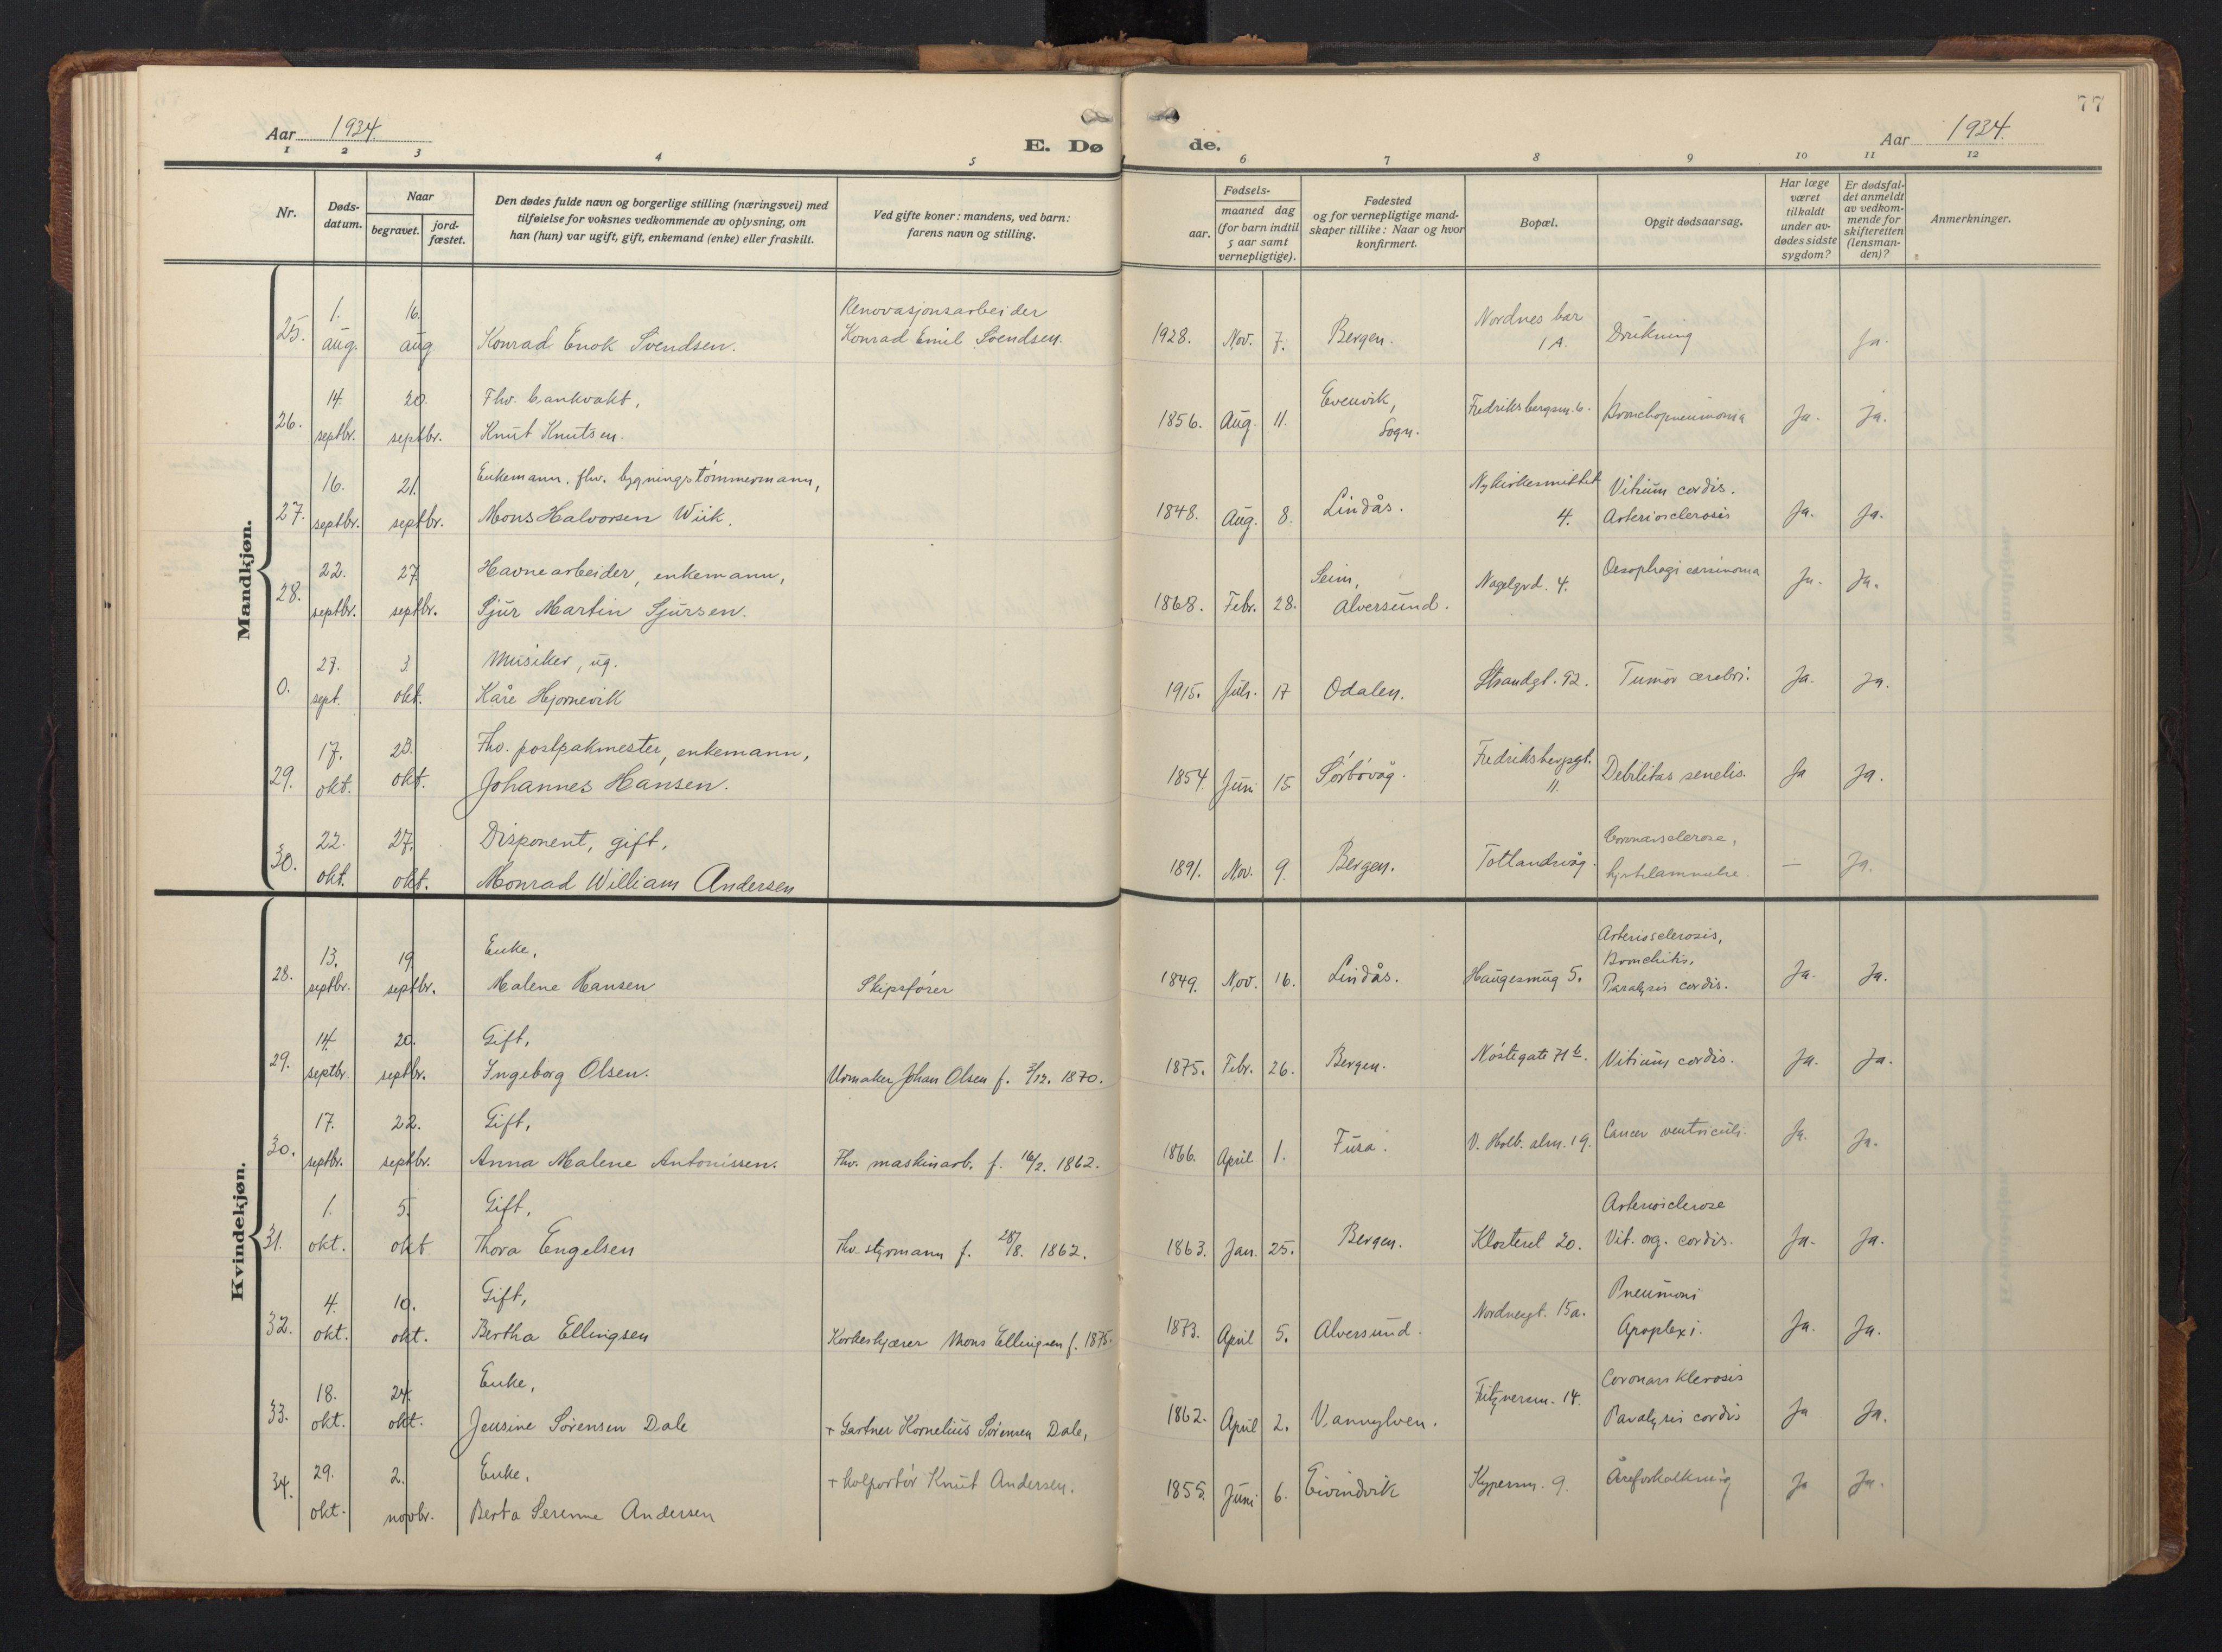 77
Aar 1934.
E. Dø
de.
Aar 1934.
1 2 3 4 5 6 7 8 9 10 11 12
Nr.
Døds-
datum.
Naar
begravet.
jord-
fæstet.
Den dødes fulde navn og borgerlige stilling (næringsvei) med
tilføielse for voksnes vedkommende av oplysning, om
han (hun) var ugift, gift, enkemand (enke) eller fraskilt.
Ved gifte koner: mandens, ved barn:
farens navn og stilling.
Fødsels-
aar.
maaned dag
(for barn indtil
5 aar samt
vernepligtige).
Fødested
og for vernepligtige mand-
skaper tillike: Naar og hvor
konfirmert.
Bopæl.
Opgit dødsaarsag.
Har læge
været
tilkaldt
under av-
dødes sidste
sygdom?
Er dødsfal-
det anmeldt
av vedkom-
mende for
skifteretten
(lensman-
den)?
Anmerkninger.
Mandkjøn.
1. 16. Renovasjonsarbeider Nordnes bar
25. aug. aug Konrad Enok Svendsen. Konrad Emil Svendsen. 1928. Nov. 7. Bergen. 1A. Drukning Ja.
14. 20. Fhv. bankvakt, Evenvik,
26. septbr. septbr. Knut Knutsen. 1856. Aug. 11. Sogn. Fredriksbergsm. 6. Bronchopneumonia Ja. Ja.
16. 21. Enkemann, fhv. bygningstømmermann, Nykirkesmittet Vitium cordis.
27. septbr. septbr. Mons Halvorsen Wiik. 1848. Aug. 8. Lindås. 4. Arteriosclerosis Ja. Ja.
22. 27. Havnearbeider, enkemann, Seim, Oesophagi carsinoma
28. septbr. septbr. Sjur Martin Sjursen. 1868. Febr. 28. Alversund. Nagelgrd. 4. Ja. Ja.
27. 3. Musiker, ug.
0. sept. okt. Kåre Hjørnevik 1915. Juli. 17 Odalen. Strandgt. 92. Tumor cerebri. Ja. Ja.
17. 23. Fhv. postpakmester, enkemann, Fredriksbergsgt.
29. okt. okt. Johannes Hansen. 1854. Juni 15. Sørbøvåg. 11. Debilitas senelis. Ja Ja.
22. 27. Disponent, gift, Coronarsclerose,
30. okt. okt. Monrad William Andersen 1891. Nov. 9. Bergen. Totlandsvåg. hjertelammelse. — Ja.
Kvindekjøn.
13. 19. Enke, Arteriosclerosis,
Bronchitis,
28. septbr. septbr. Malene Hansen Skipsfører 1849. Nov. 16. Lindås. Haugesmug 5. Paralysis cordis. Ja. Ja.
14. 20. Gift,
29. septbr. septbr. Ingeborg Olsen. Urmaker Johan Olsen f. /12. 1870. 1875. Febr. 26. Bergen. Nøstegate 71b. Vitium cordis. Ja. Ja.
17. 22. Gift,
30. septbr. septbr. Anna Malene Antonissen. Fhv. maskinarb. f. 16/2. 1862. 1866. April 1. Fusa. V. Holb. alm. 19. Cancer ventriculi. Ja. Ja.
1. 5. Gift, Arteriosclerose
31. okt. okt Thora Engelsen Fhv. styrmann f. 28/8. 1862. 1863. Jan. 25. Bergen. Klosteret 20. Vit. org. cordis. Ja. Ja.
4. 10. Gift, Pneumoni
32. okt. okt. Bertha Ellingsen Korkeskjærer Mons Ellingsen f. 1875. 1873. April 5. Alversund. Nordnesgt. 15a. Apoplexi. Ja. Ja.
18. 24. Enke, Coronarsklerosis
33. okt. okt. Jensine Sørensen Dale + Gartner Kornelius Sørensen Dale, 1862. April 2. Vannylven. Fritznersm. 14. Paralysis cordis Ja Ja.
29. 2. Enke,
34. okt. novbr. Berta Serenne Andersen + kolportør Knut Andersen. 1855. Juni 6. Eivindvik Kypersm. 9. Åreforkalkning Ja Ja.